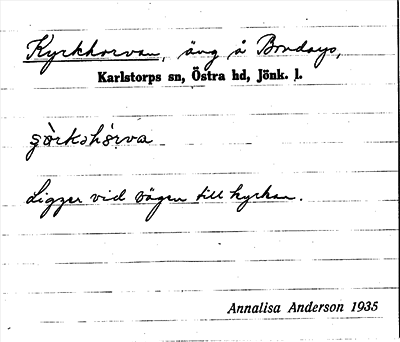 Kyrkhorvan, äng å Brudarp,
Karlstorps sn, Östra hd, Jönk. l.
Ligger vid vägen till kyrkan.
Annalisa Anderson 1935